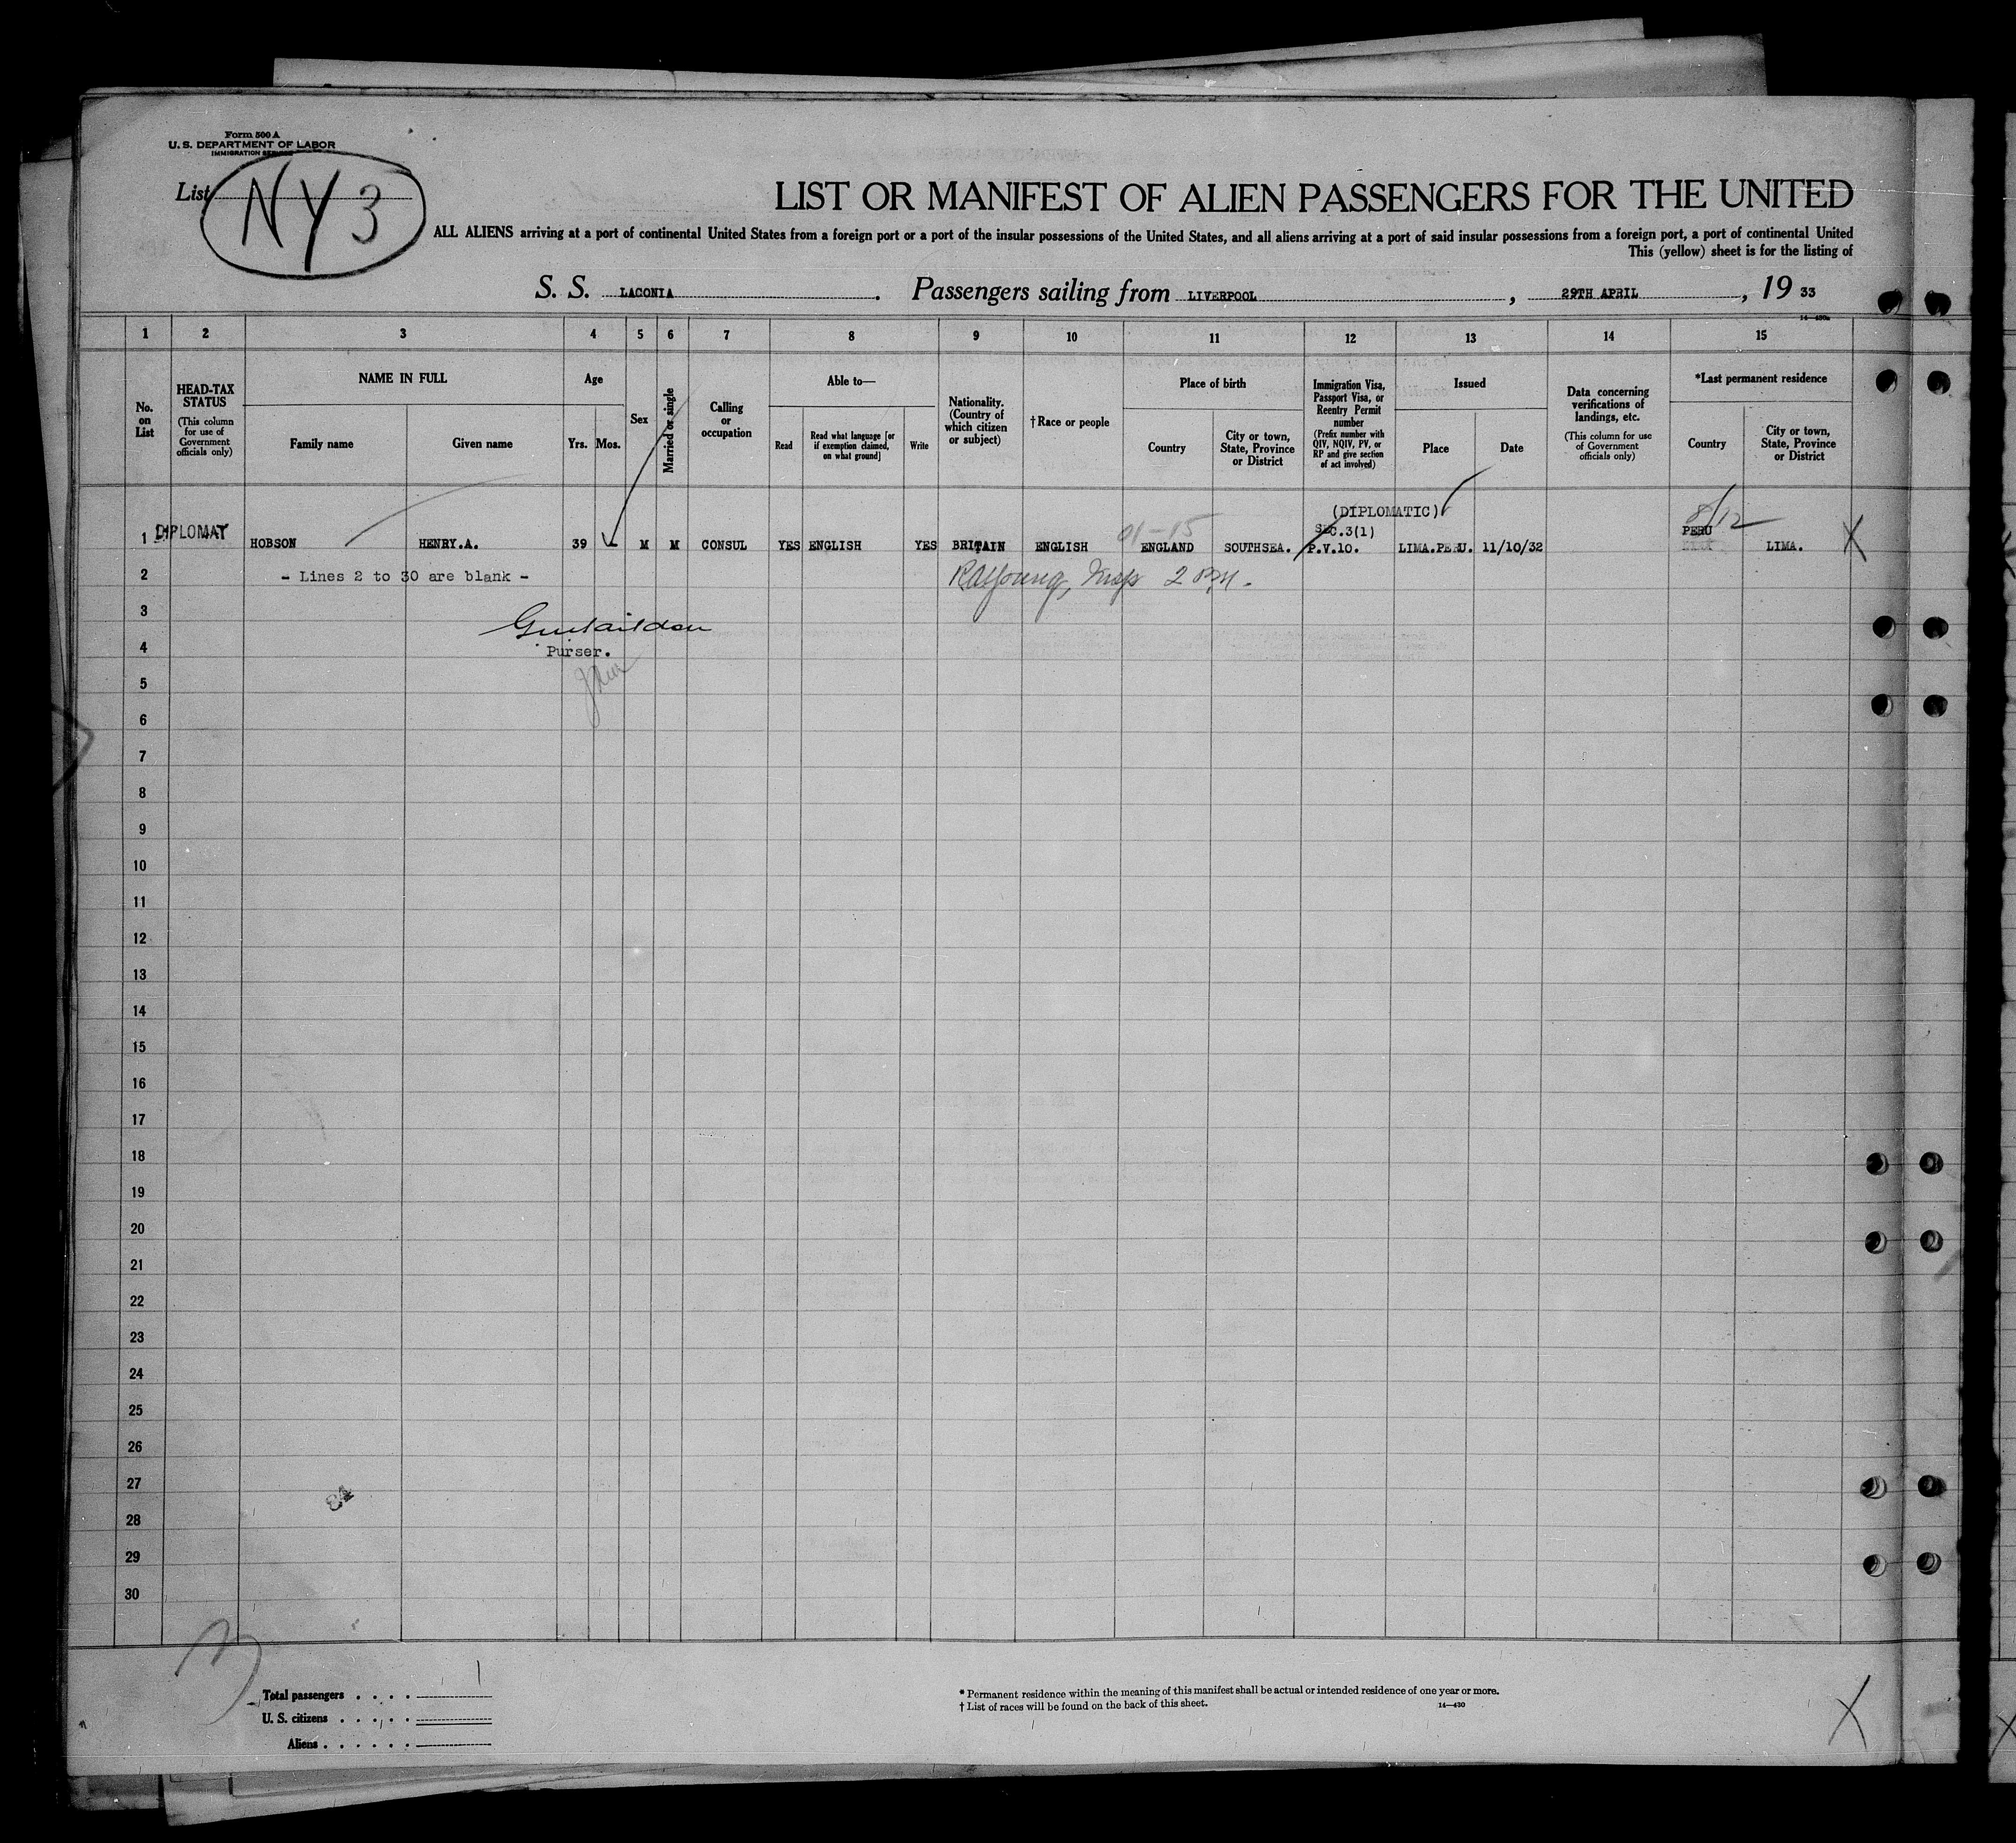 Form 500 A
U. S. DEPARTMENT OF LABOR
IMMIGRATION SERVICE
List NY 3
LIST OR MANIFEST OF ALIEN PASSENGERS FOR THE UNITED
ALL ALIENS arriving at a port of continental United States from a foreign port or a port of the insular possessions of the United States, and all aliens arriving at a port of said insular possessions from a foreign port, a port of continental United
This (yellow) sheet is for the listing of
S. S. LACONIA. Passengers sailing from LIVERPOOL, 29TH APRIL, 19 33
14—430a
1 2 3 4 5 6 7 8 9 10 11 12 13 14 15
No. on List
HEAD-TAX STATUS
(This column for use of Government officials only)
NAME IN FULL
Family name
Given name
Age
Yrs. Mos.
Sex
Married or single
Calling or occupation
Able to—
Read
Read what language [or if exemption claimed, on what ground]
Write
Nationality. (Country of which citizen or subject)
† Race or people
Place of birth
Country
City or town, State, Province or District
Immigration Visa, Passport Visa, or Reentry Permit number
(Prefix number with QIV, NQIV, PV, or RP and give section of act involved)
Issued
Place
Date
Data concerning verifications of landings, etc.
(This column for use of Government officials only)
*Last permanent residence
Country
City or town, State, Province or District
(DIPLOMATIC)
8/12
01-15
SEC.3(1)
PERU
1 DIPLOMAT HOBSON HENRY.A. 39 M M CONSUL YES ENGLISH YES BRITAIN ENGLISH ENGLAND SOUTHSEA. P.V.10. LIMA.PERU. 11/10/32 LIMA. X
2 - Lines 2 to 30 are blank -
3
4 Purser.
5
6
7
8
9
10
11
12
13
14
15
16
17
18
19
20
21
22
23
24
25
26
27
84
28
29
30
3
Total passengers . . . . 1
U. S. citizens . . . . .
Aliens . . . . . .
* Permanent residence within the meaning of this manifest shall be actual or intended residence of one year or more.
† List of races will be found on the back of this sheet. 14—430
X